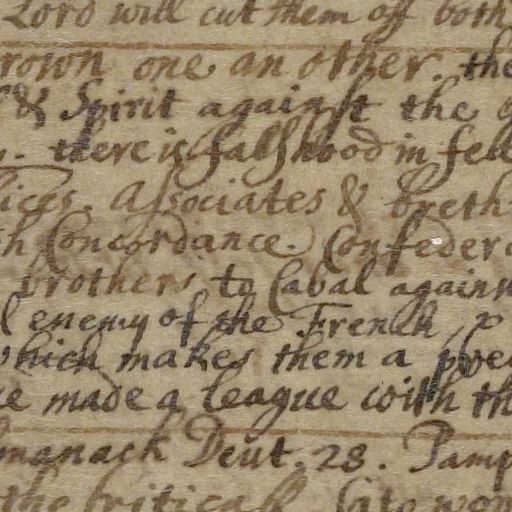 Lord will cut them off both
rown one an other. the
& Spirit against the
. there is falshood in fell
lices. Associates & breth
h Concordance. Confeder
brothers, to Cabal again
l enemy of the French, x
which makes them a pre
ue made a league with th
lmanack Deut. 28. Pamp
the critical